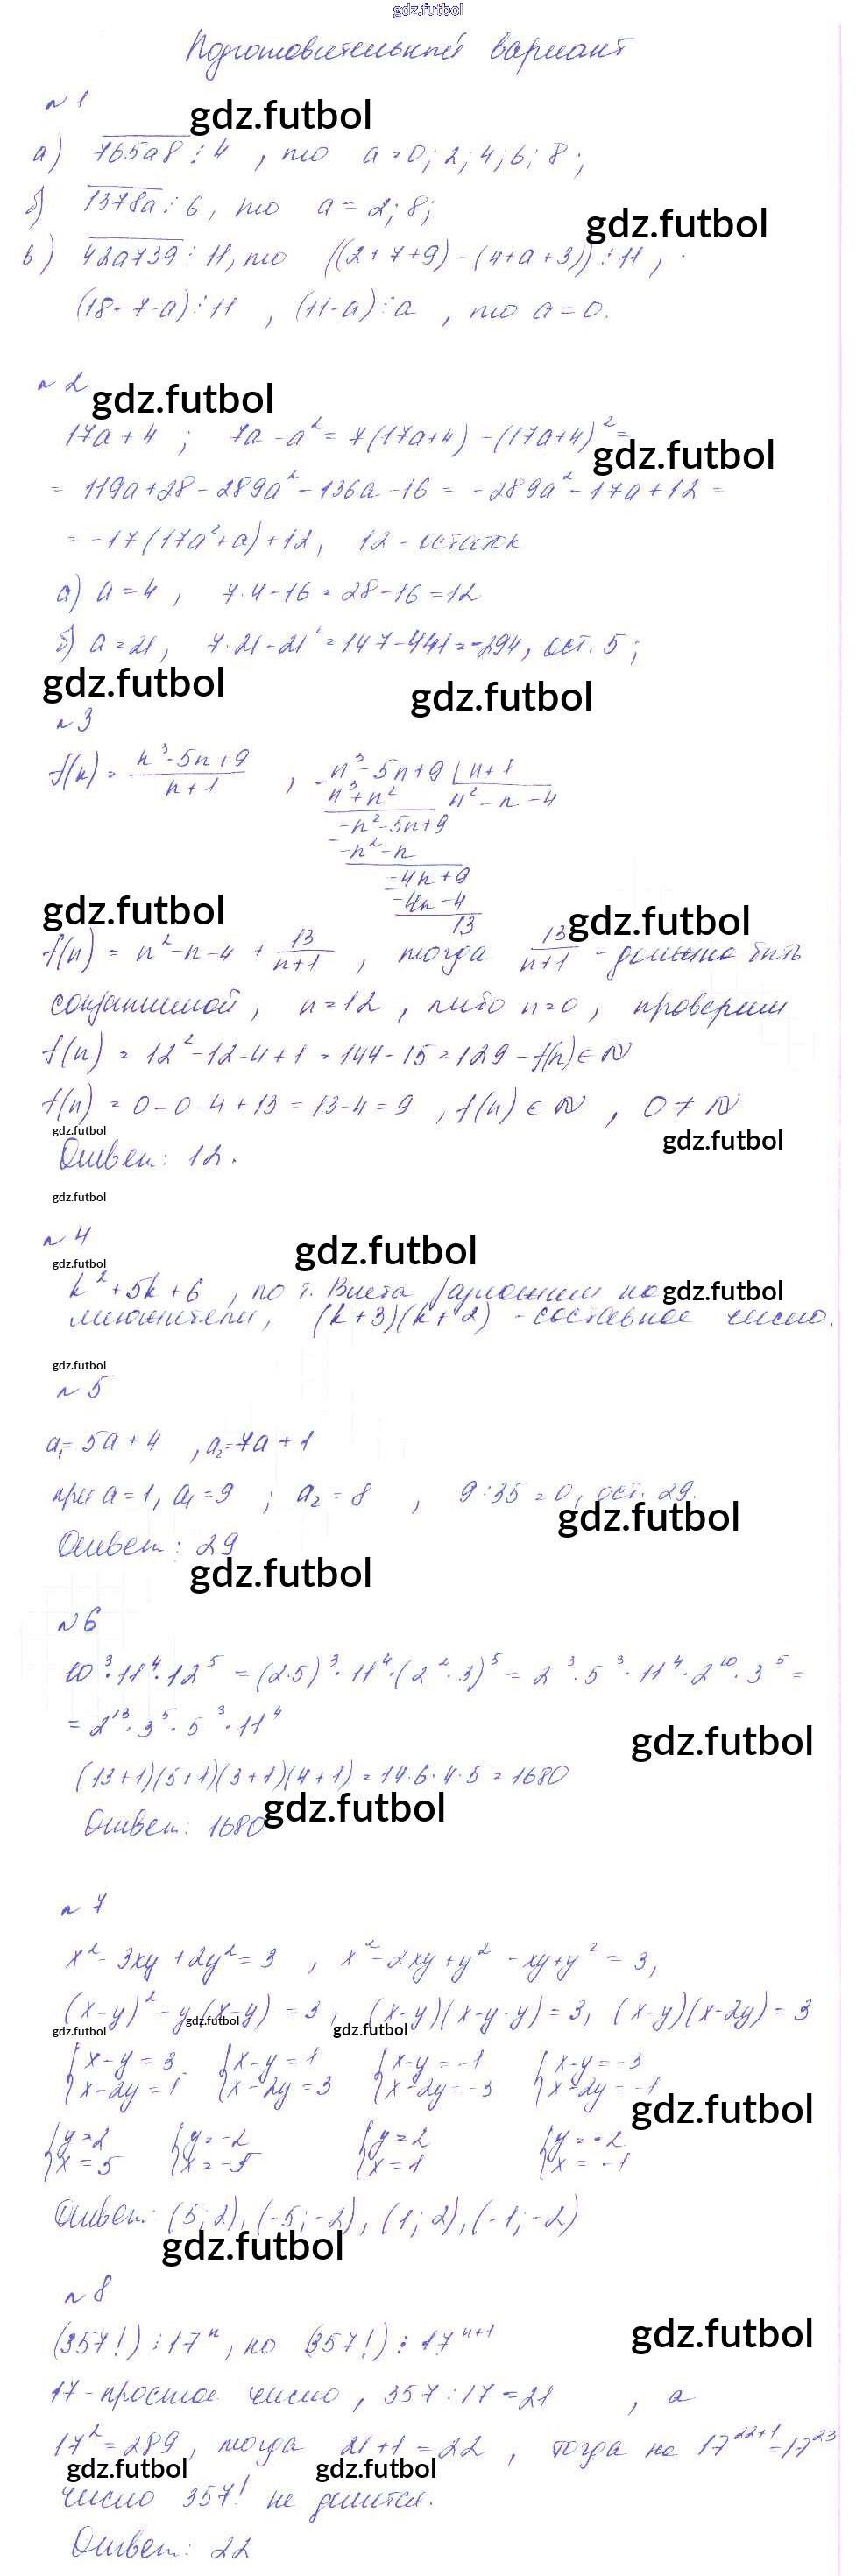 gdz.futbol
Подготовительный вариант
№ 1
gdz.futbol
а) 765a8 ⋮ 4 , то a = 0; 2; 4; 6; 8;
б) 1378a ⋮ 6, то a = 2; 8;
gdz.futbol
в) 42a739 ⋮ 11, то ((2+7+9) - (4+a+3)) ⋮ 11,
(18-7-a) ⋮ 11 , (11-a) ⋮ a , то a = 0.
№ 2
gdz.futbol
17a + 4 ; 7a - a² = 7(17a+4) - (17a+4)² =
gdz.futbol
= 119a + 28 - 289a² - 136a - 16 = -289a² - 17a + 12 =
= -17(17a² + a) + 12, 12 - остаток
а) a = 4 , 7·4 - 16 = 28 - 16 = 12
б) a = 21, 7·21 - 21² = 147 - 441 = -294, ост. 5;
gdz.futbol gdz.futbol
№ 3
f(n) = (n³ - 5n + 9)/(n + 1) , n³ - 5n + 9 | n + 1
n³ + n² n² - n - 4
-n² - 5n + 9
-n² - n
-4n + 9
-4n - 4
13
gdz.futbol gdz.futbol
f(n) = n² - n - 4 + 13/(n+1) , тогда 13/(n+1) - должна быть
сократимой, n = 12 , либо n = 0 , проверим
f(n) = 12² - 12 - 4 + 1 = 144 - 15 = 129 - f(n) ∈ N
f(n) = 0 - 0 - 4 + 13 = 13 - 4 = 9 , f(n) ∈ N , 0 ≠ N
gdz.futbol gdz.futbol
Ответ: 12.
gdz.futbol
№ 4
gdz.futbol gdz.futbol
k² + 5k + 6 , по т. Виета разложим на
gdz.futbol
множители, (k + 3)(k + 2) - составное число.
gdz.futbol
№ 5
a₁ = 5a + 4 , a₂ = 7a + 1
при a = 1, a₁ = 9 ; a₂ = 8 , 9 : 35 = 0, ост. 29.
gdz.futbol
Ответ: 29
gdz.futbol
№ 6
10³·11⁴·12⁵ = (2·5)³·11⁴·(2²·3)⁵ = 2³·5³·11⁴·2¹⁰·3⁵ =
= 2¹³·3⁵·5³·11⁴
gdz.futbol
(13+1)(5+1)(3+1)(4+1) = 14·6·4·5 = 1680
gdz.futbol
Ответ: 1680
№ 7
x² - 3xy + 2y² = 3 , x² - 2xy + y² - xy + y² = 3,
(x-y)² - y(x-y) = 3, (x-y)(x-y-y) = 3, (x-y)(x-2y) = 3
gdz.futbol gdz.futbol gdz.futbol
{x-y = 3 {x-y = 1 {x-y = -1 {x-y = -3
{x-2y = 1 {x-2y = 3 {x-2y = -3 {x-2y = -1
gdz.futbol
{y = 2 {y = -2 {y = 2 {y = -2
{x = 5 {x = -5 {x = 1 {x = -1
Ответ: (5; 2), (-5; -2), (1; 2), (-1; -2)
gdz.futbol
№ 8
gdz.futbol
(357!) ⋮ 17ⁿ, но (357!) ⋮ 17ⁿ⁺¹
17 - простое число, 357 : 17 = 21 , а
17² = 289, тогда 21 + 1 = 22 , тогда на 17²²⁺¹ = 17²³
gdz.futbol gdz.futbol
число 357! не делится.
Ответ: 22